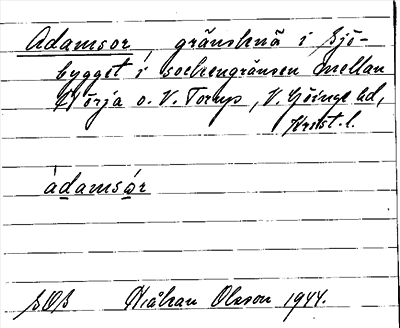 Adamsor, gränsknä i Sjö-
bygget i sockengränsen mellan
Nörja o. V. Torup, V. Göinge hd,
Krist. l.
àdamsór
SOS Håkan Olsson 1944.